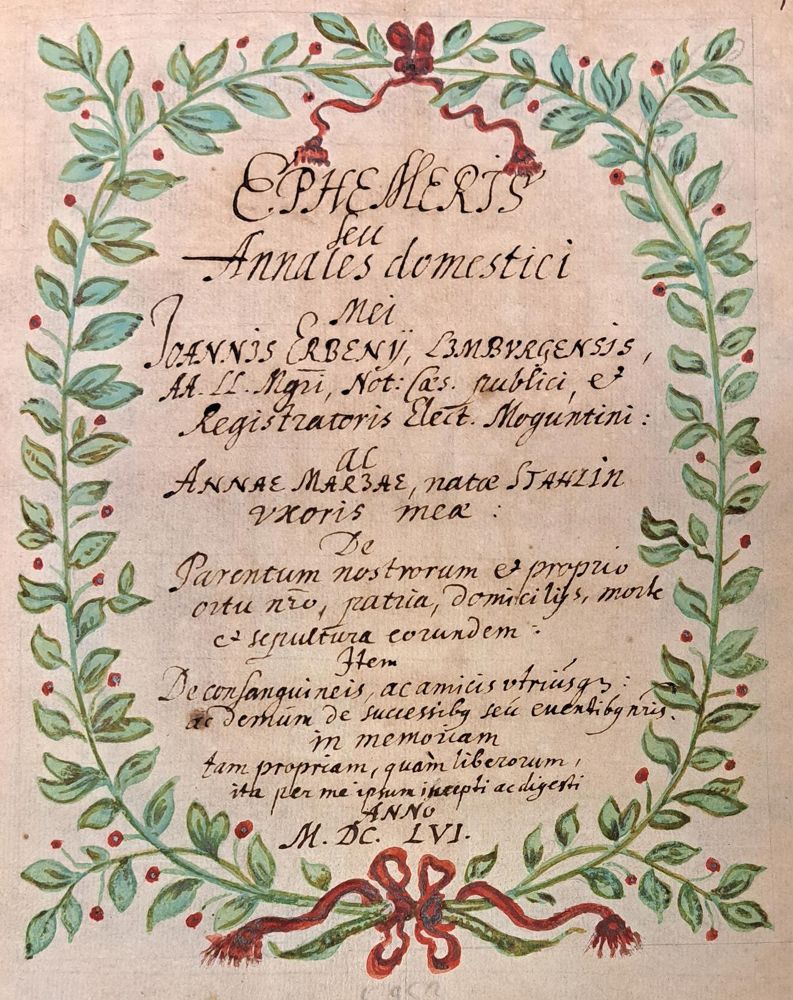 EPHEMERIS
seu
Annales domestici
Mei
IOANNIS ERBENIJ, LIMBVRGENSIS,
AA. LL. Mgri, Not: Cæs. publici, &
Registratoris Elect. Moguntini:
ac
ANNAE MARIAE, natæ STAHLIN
vxoris meæ:
De
Parentum nostrorum & proprio
ortu nr̄o, patria, domicilijs, morte
& sepultura eorundem.
Item
De consanguineis, ac amicis vtriúsq3:
ac demùm de successibq seu eventibq nr̄is.
in memoriam
tam propriam, quàm liberorum,
ita per me ipsum incepti ac digesti
ANNO
M. DC. LVI.